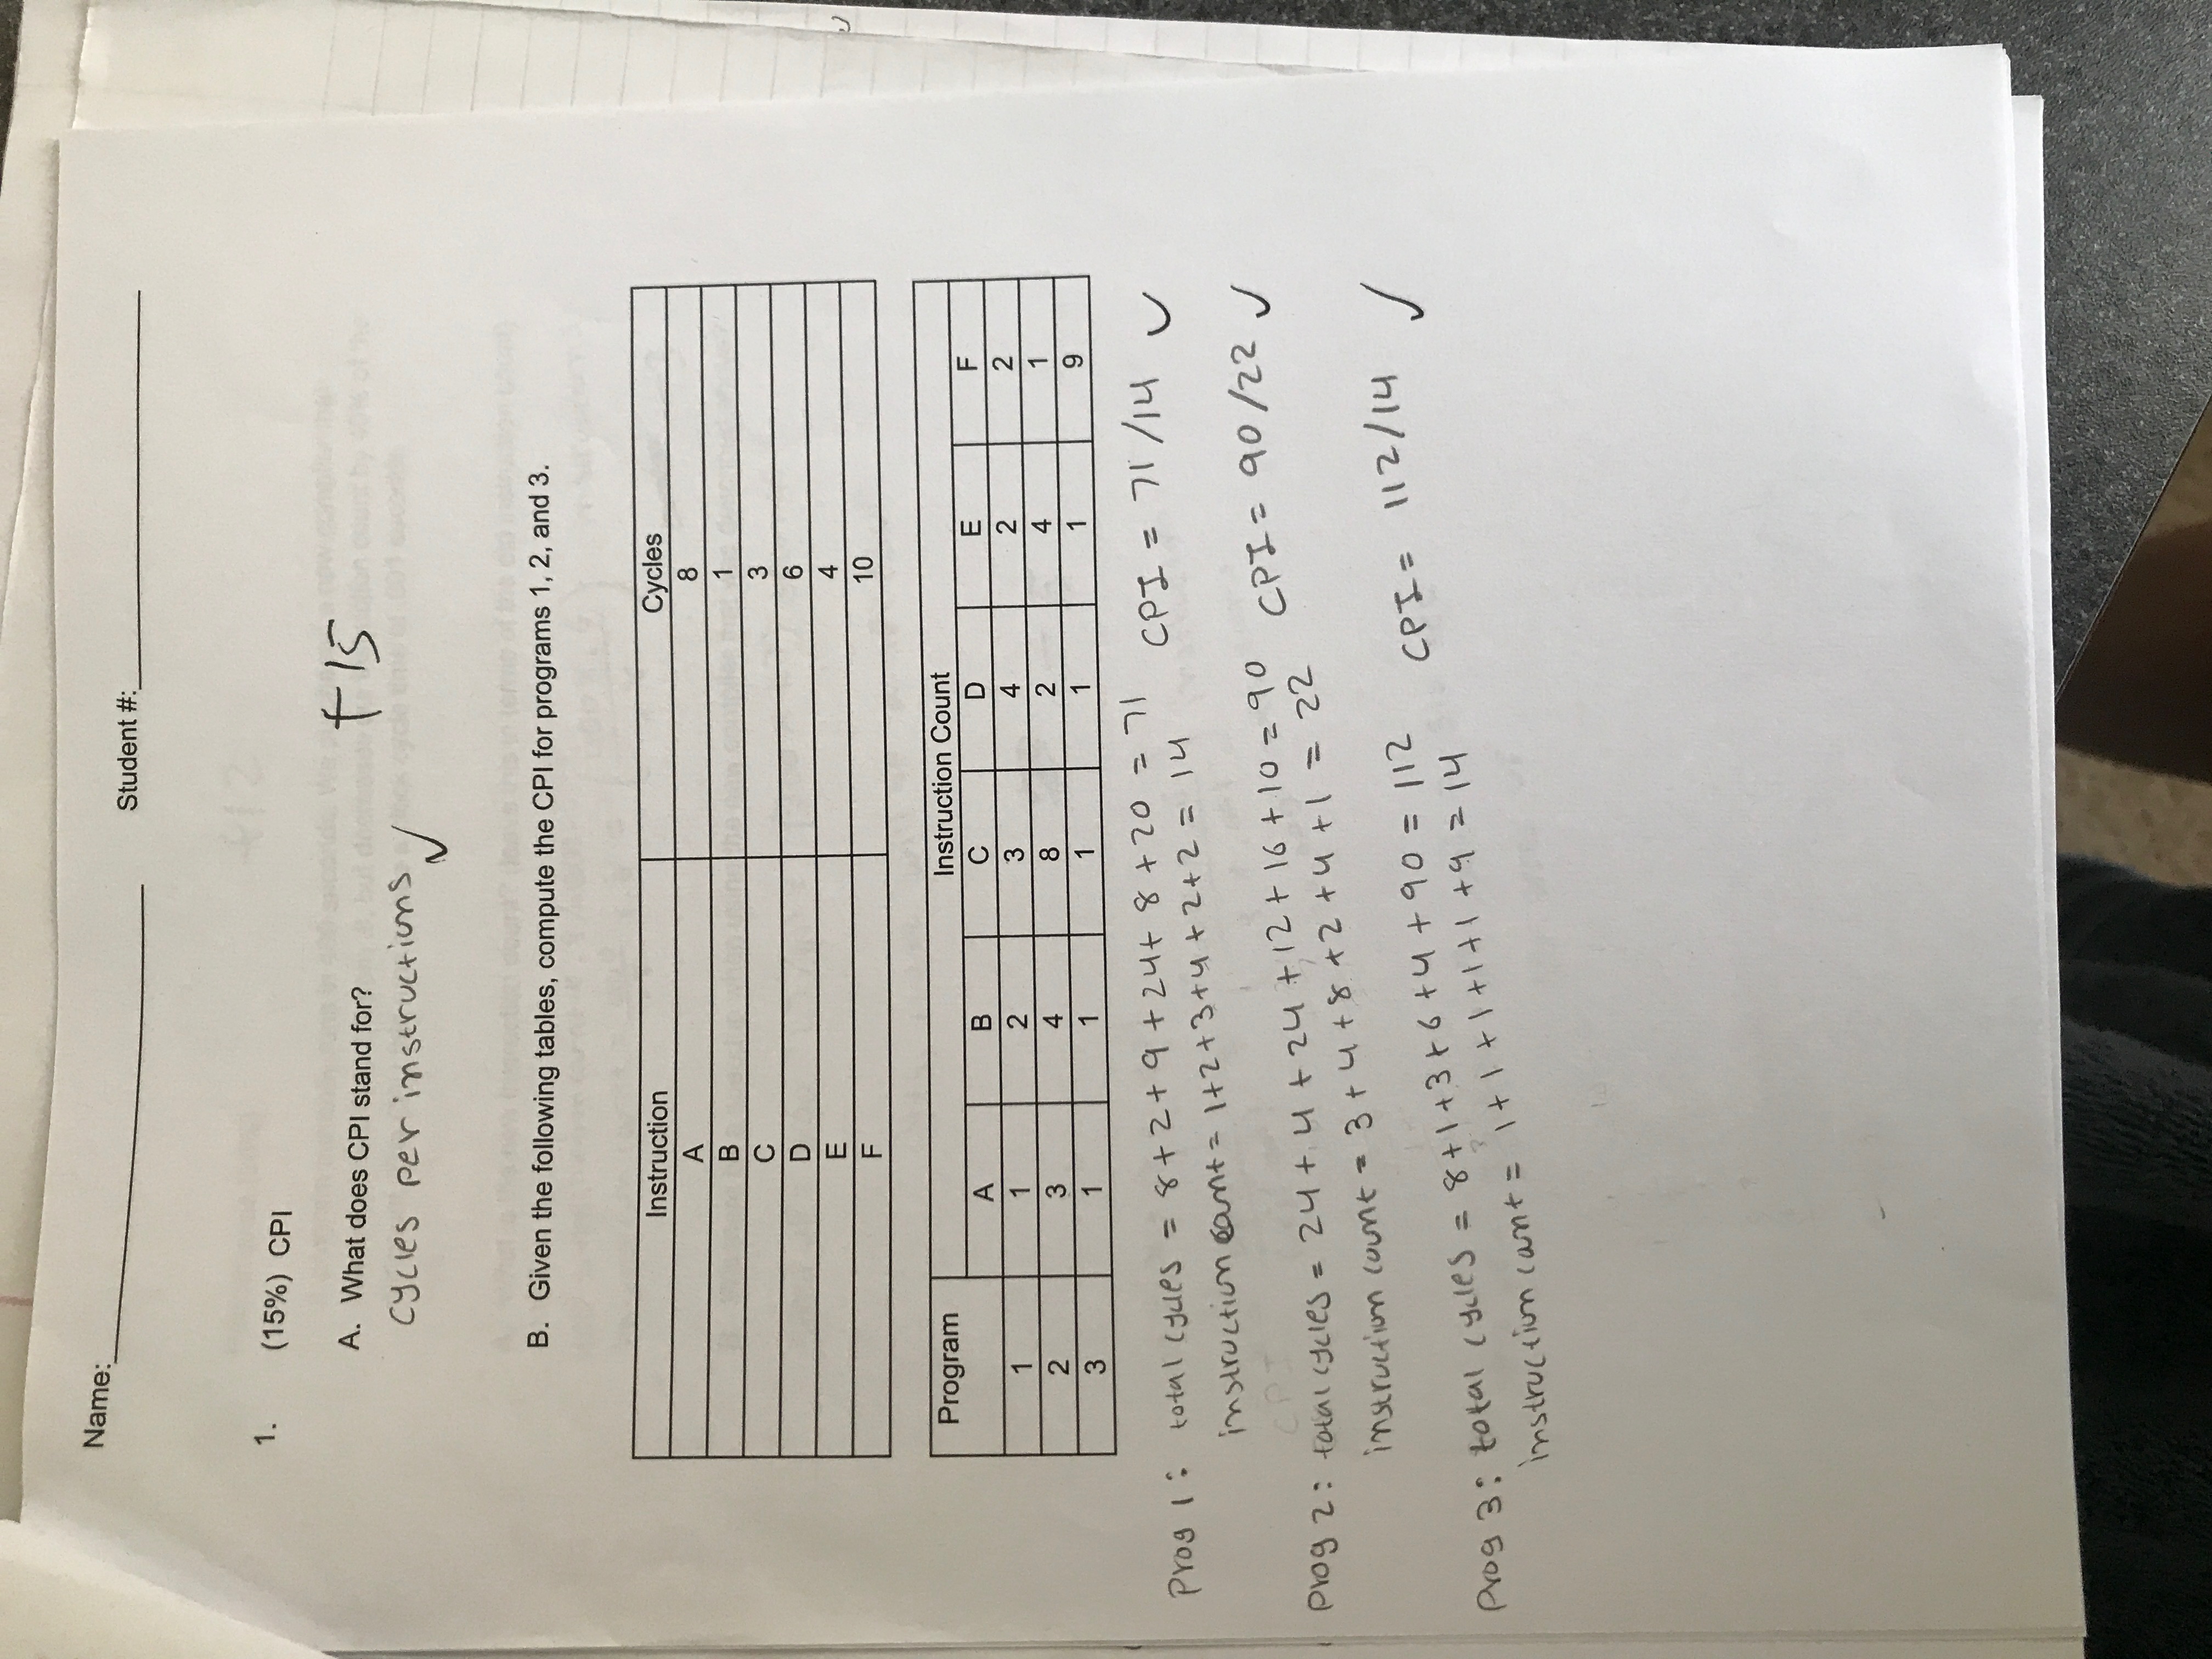 Name:
Student #:
+12
1. (15%) CPI
+15
A. What does CPI stand for?
cycles per instructions ✓
B. Given the following tables, compute the CPI for programs 1, 2, and 3.
Instruction Cycles
A 8
B 1
C 3
D 6
E 4
F 10
Program Instruction Count
A B C D E F
1 1 2 3 4 2 2
2 3 4 8 2 4 1
3 1 1 1 1 1 9
Prog 1: total cycles = 8+2+9+24+8+20 = 71 CPI = 71/14 ✓
instruction count = 1+2+3+4+2+2 = 14
Prog 2: total cycles = 24+4+24+12+16+10 = 90 CPI = 90/22 ✓
instruction count = 3+4+8+2+4+1 = 22
Prog 3: total cycles = 8+1+3+6+4+90 = 112 CPI = 112/14 ✓
instruction count = 1+1+1+1+1+9 = 14